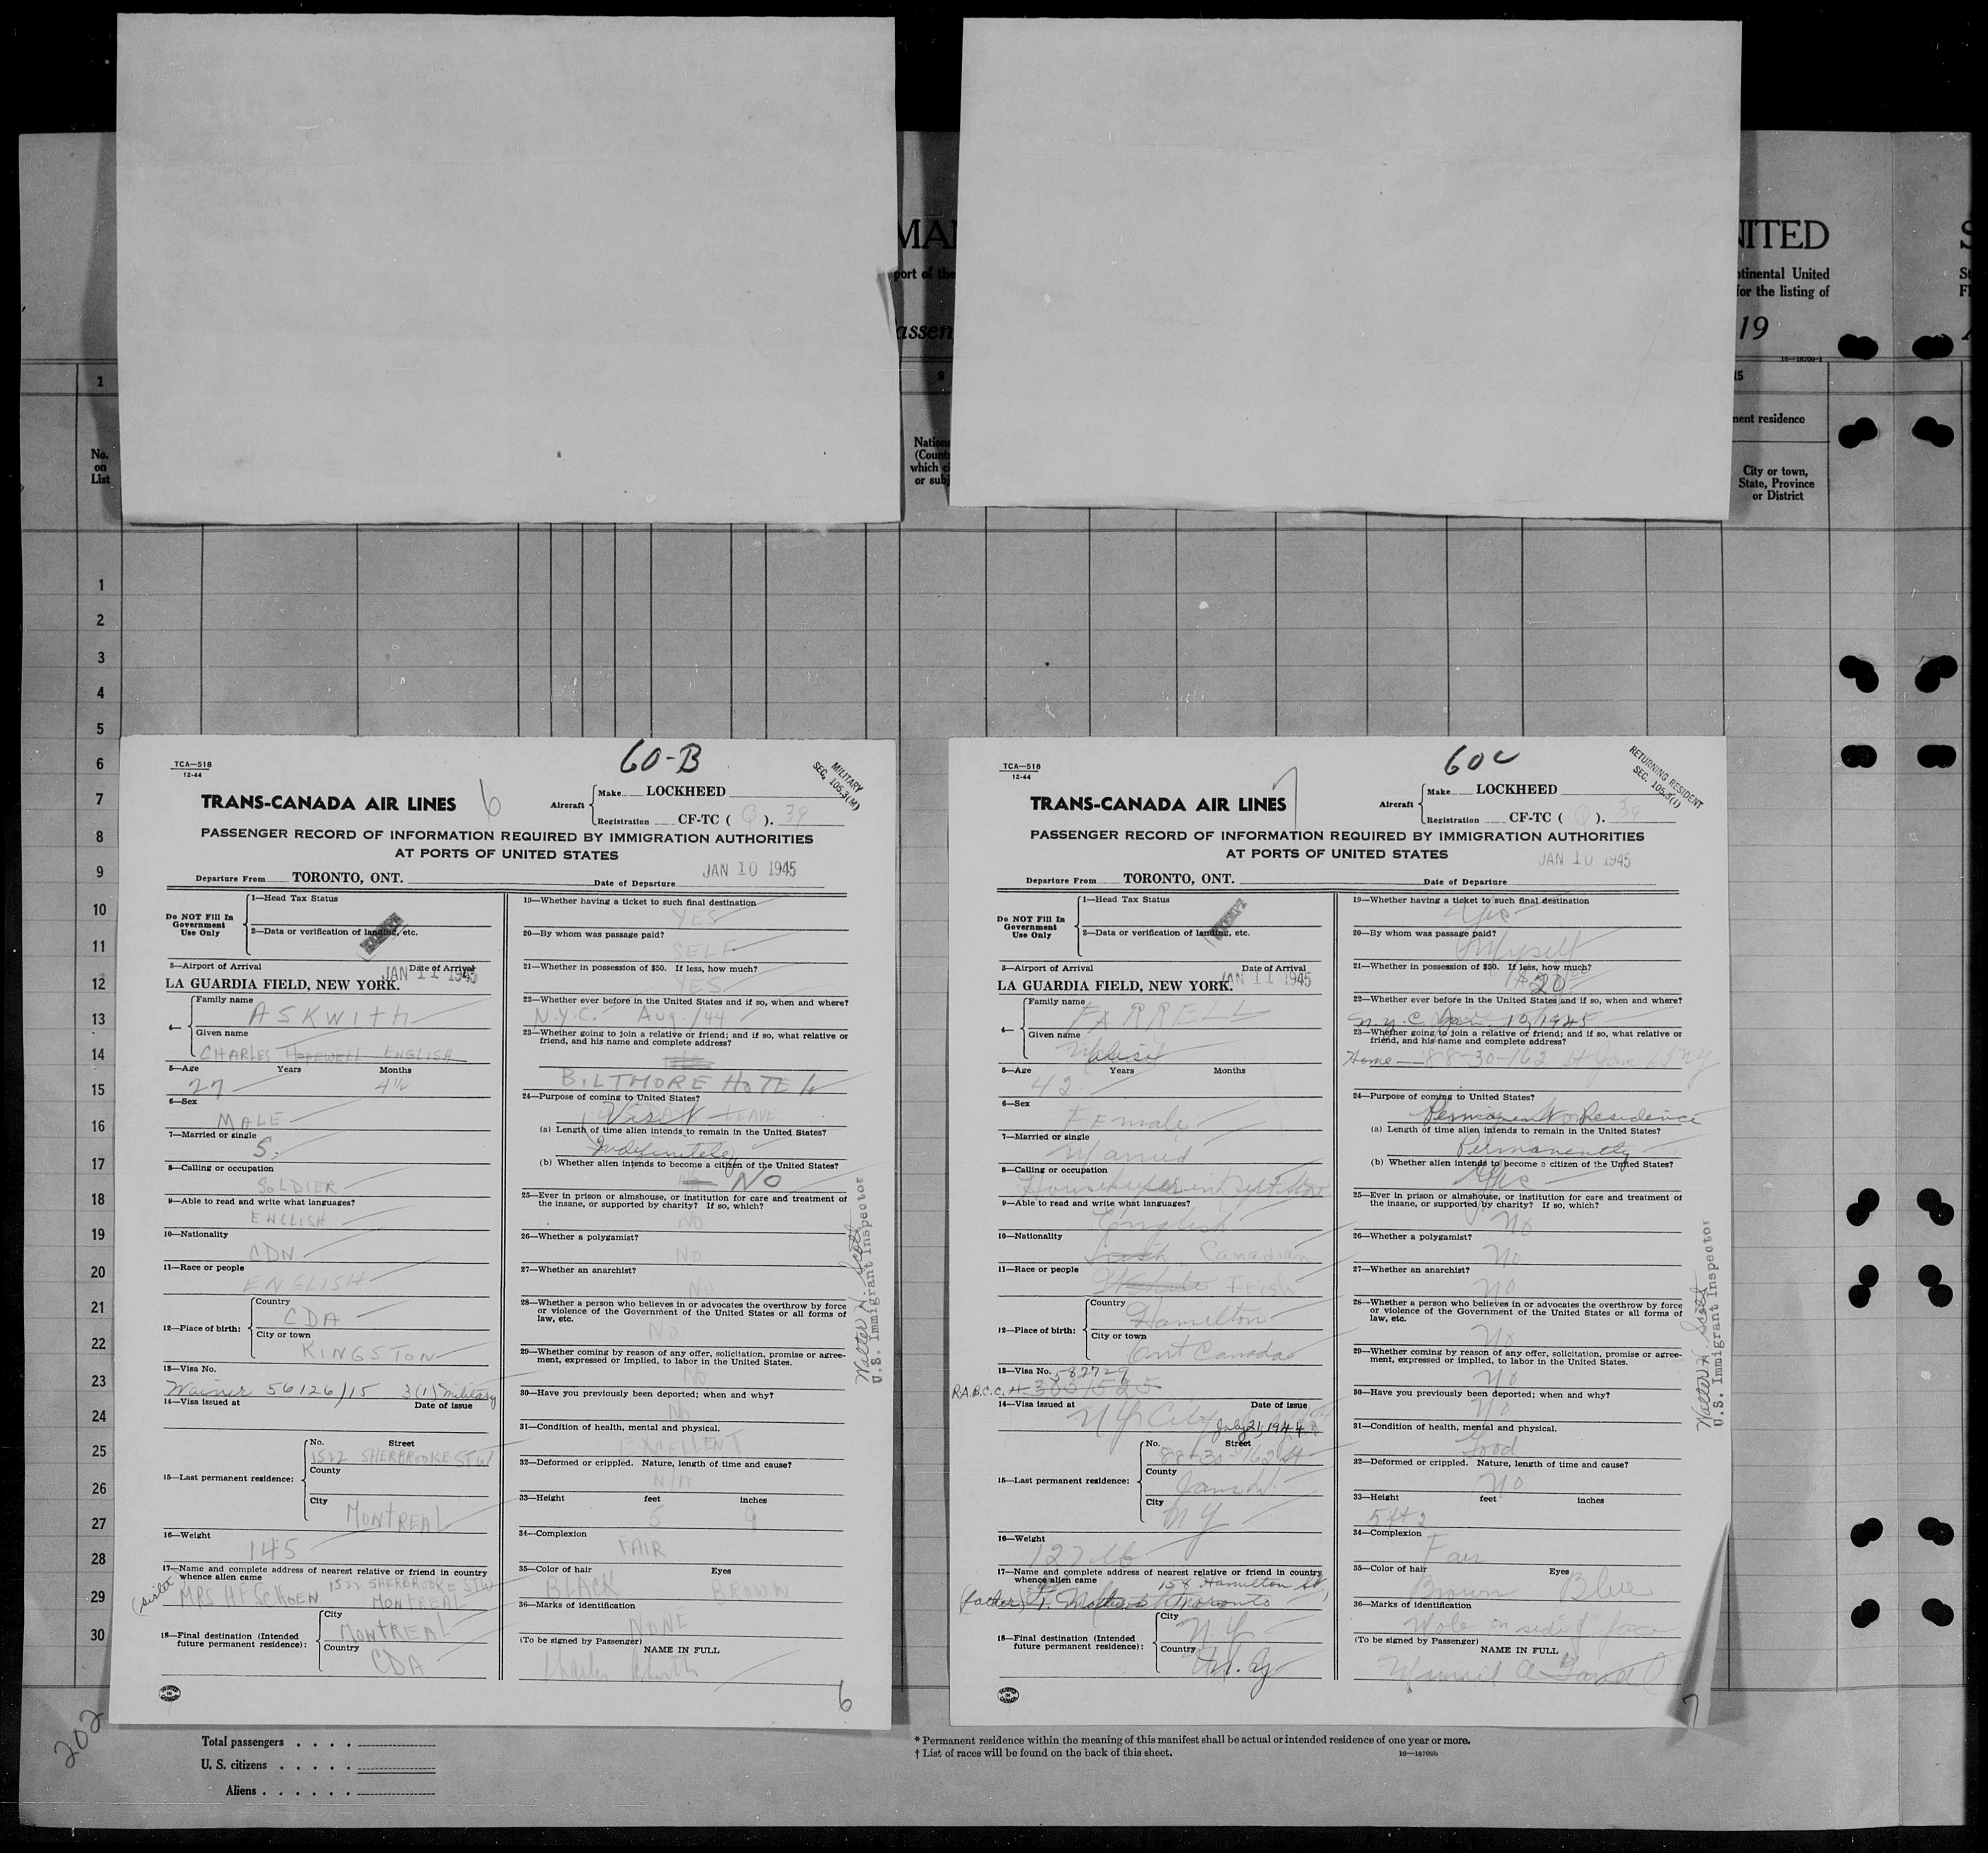 MAN
NITED
S
port of the
ntinental United
for the listing of
assen
19
16—18709-1
1
9
15
No.
on
List
Nation
(Count
which ci
or subj
nent residence
City or town,
State, Province
or District
1
2
3
4
5
6
7
8
9
10
11
12
13
14
15
16
17
18
19
20
21
22
23
24
25
26
27
28
29
30
60-B
TCA—518
12-44
MILITARY
SEC. 105.3(M)
TRANS-CANADA AIR LINES 6
Aircraft Make LOCKHEED
Registration CF-TC ( Q ). 39
PASSENGER RECORD OF INFORMATION REQUIRED BY IMMIGRATION AUTHORITIES
AT PORTS OF UNITED STATES
JAN 10 1945
Departure From TORONTO, ONT. Date of Departure
Do NOT Fill In
Government
Use Only
1—Head Tax Status
2—Data or verification of landing, etc.
3—Airport of Arrival Date of Arrival
LA GUARDIA FIELD, NEW YORK. JAN 11 1945
4— Family name
ASKWITH
Given name
CHARLES HOPEWELL ENGLISH
5—Age Years Months
27 4½
6—Sex
MALE
7—Married or single
S.
8—Calling or occupation
SOLDIER
9—Able to read and write what languages?
ENGLISH
10—Nationality
CDN
11—Race or people
ENGLISH
12—Place of birth: Country
CDA
City or town
KINGSTON
13—Visa No.
Waiver 56126/15 3(1) Military
14—Visa issued at Date of issue
15—Last permanent residence: No. Street
1522 SHERBROOKE ST W
County
City
MONTREAL
16—Weight
145
17—Name and complete address of nearest relative or friend in country
whence alien came 1522 SHERBROOKE ST W
(sister MRS HF SCHOEN MONTREAL
18—Final destination (Intended
future permanent residence): City
MONTREAL
Country
CDA
19—Whether having a ticket to such final destination
YES
20—By whom was passage paid?
SELF
21—Whether in possession of $50. If less, how much?
YES
22—Whether ever before in the United States and if so, when and where?
N.Y.C. Aug./44
23—Whether going to join a relative or friend; and if so, what relative or
friend, and his name and complete address?
BILTMORE HOTEL
24—Purpose of coming to United States?
Visit LEAVE
(a) Length of time alien intends to remain in the United States?
Indefinitely
(b) Whether alien intends to become a citizen of the United States?
No
25—Ever in prison or almshouse, or institution for care and treatment of
the insane, or supported by charity? If so, which?
NO
26—Whether a polygamist?
NO
27—Whether an anarchist?
NO
28—Whether a person who believes in or advocates the overthrow by force
or violence of the Government of the United States or all forms of
law, etc.
NO
29—Whether coming by reason of any offer, solicitation, promise or agree-
ment, expressed or implied, to labor in the United States.
NO
30—Have you previously been deported; when and why?
NO
31—Condition of health, mental and physical.
EXCELLENT
32—Deformed or crippled. Nature, length of time and cause?
N/A
33—Height feet inches
5 9
34—Complexion
FAIR
35—Color of hair Eyes
BLACK BROWN
36—Marks of identification
NONE
(To be signed by Passenger) NAME IN FULL
Charles Askwith
Walter H. Scott
U.S. Immigrant Inspector
6
60C
TCA—518
12-44
RETURNING RESIDENT
SEC. 105.3(I)
TRANS-CANADA AIR LINES 7
Aircraft Make LOCKHEED
Registration CF-TC ( Q ). 39
PASSENGER RECORD OF INFORMATION REQUIRED BY IMMIGRATION AUTHORITIES
AT PORTS OF UNITED STATES
JAN 10 1945
Departure From TORONTO, ONT. Date of Departure
Do NOT Fill In
Government
Use Only
1—Head Tax Status
2—Data or verification of landing, etc.
3—Airport of Arrival Date of Arrival
LA GUARDIA FIELD, NEW YORK. JAN 11 1945
4— Family name
FARRELL
Given name
5—Age Years Months
42
6—Sex
Female
7—Married or single
Married
8—Calling or occupation
9—Able to read and write what languages?
English
10—Nationality
Irish Canadian
11—Race or people
White Irish
12—Place of birth: Country
Hamilton
City or town
Ont Canada
13—Visa No. 587729
R.A.B.C.C.
14—Visa issued at Date of issue
N Y City July 21, 1944
15—Last permanent residence: No. Street
88-30-162 St
County
City
N Y
16—Weight
127 lb
17—Name and complete address of nearest relative or friend in country
whence alien came 158 Hamilton St,
(father) Toronto
18—Final destination (Intended
future permanent residence): City
N.Y.
Country
N.Y.
19—Whether having a ticket to such final destination
Yes
20—By whom was passage paid?
Myself
21—Whether in possession of $50. If less, how much?
20
22—Whether ever before in the United States and if so, when and where?
N.Y.C. Jan. 10, 1945
23—Whether going to join a relative or friend; and if so, what relative or
friend, and his name and complete address?
Home — 88-30-162 St Jam NY
24—Purpose of coming to United States?
Permanent Residence
(a) Length of time alien intends to remain in the United States?
Permanently
(b) Whether alien intends to become a citizen of the United States?
Yes
25—Ever in prison or almshouse, or institution for care and treatment of
the insane, or supported by charity? If so, which?
No
26—Whether a polygamist?
No
27—Whether an anarchist?
No
28—Whether a person who believes in or advocates the overthrow by force
or violence of the Government of the United States or all forms of
law, etc.
No
29—Whether coming by reason of any offer, solicitation, promise or agree-
ment, expressed or implied, to labor in the United States.
No
30—Have you previously been deported; when and why?
No
31—Condition of health, mental and physical.
Good
32—Deformed or crippled. Nature, length of time and cause?
No
33—Height feet inches
5 ft 2
34—Complexion
Fair
35—Color of hair Eyes
Brown Blue
36—Marks of identification
Mole on side of face
(To be signed by Passenger) NAME IN FULL
Walter H. Scott
U.S. Immigrant Inspector
7
202
Total passengers . . . .
U. S. citizens . . . . .
Aliens . . . . . .
* Permanent residence within the meaning of this manifest shall be actual or intended residence of one year or more.
† List of races will be found on the back of this sheet. 16—18709b